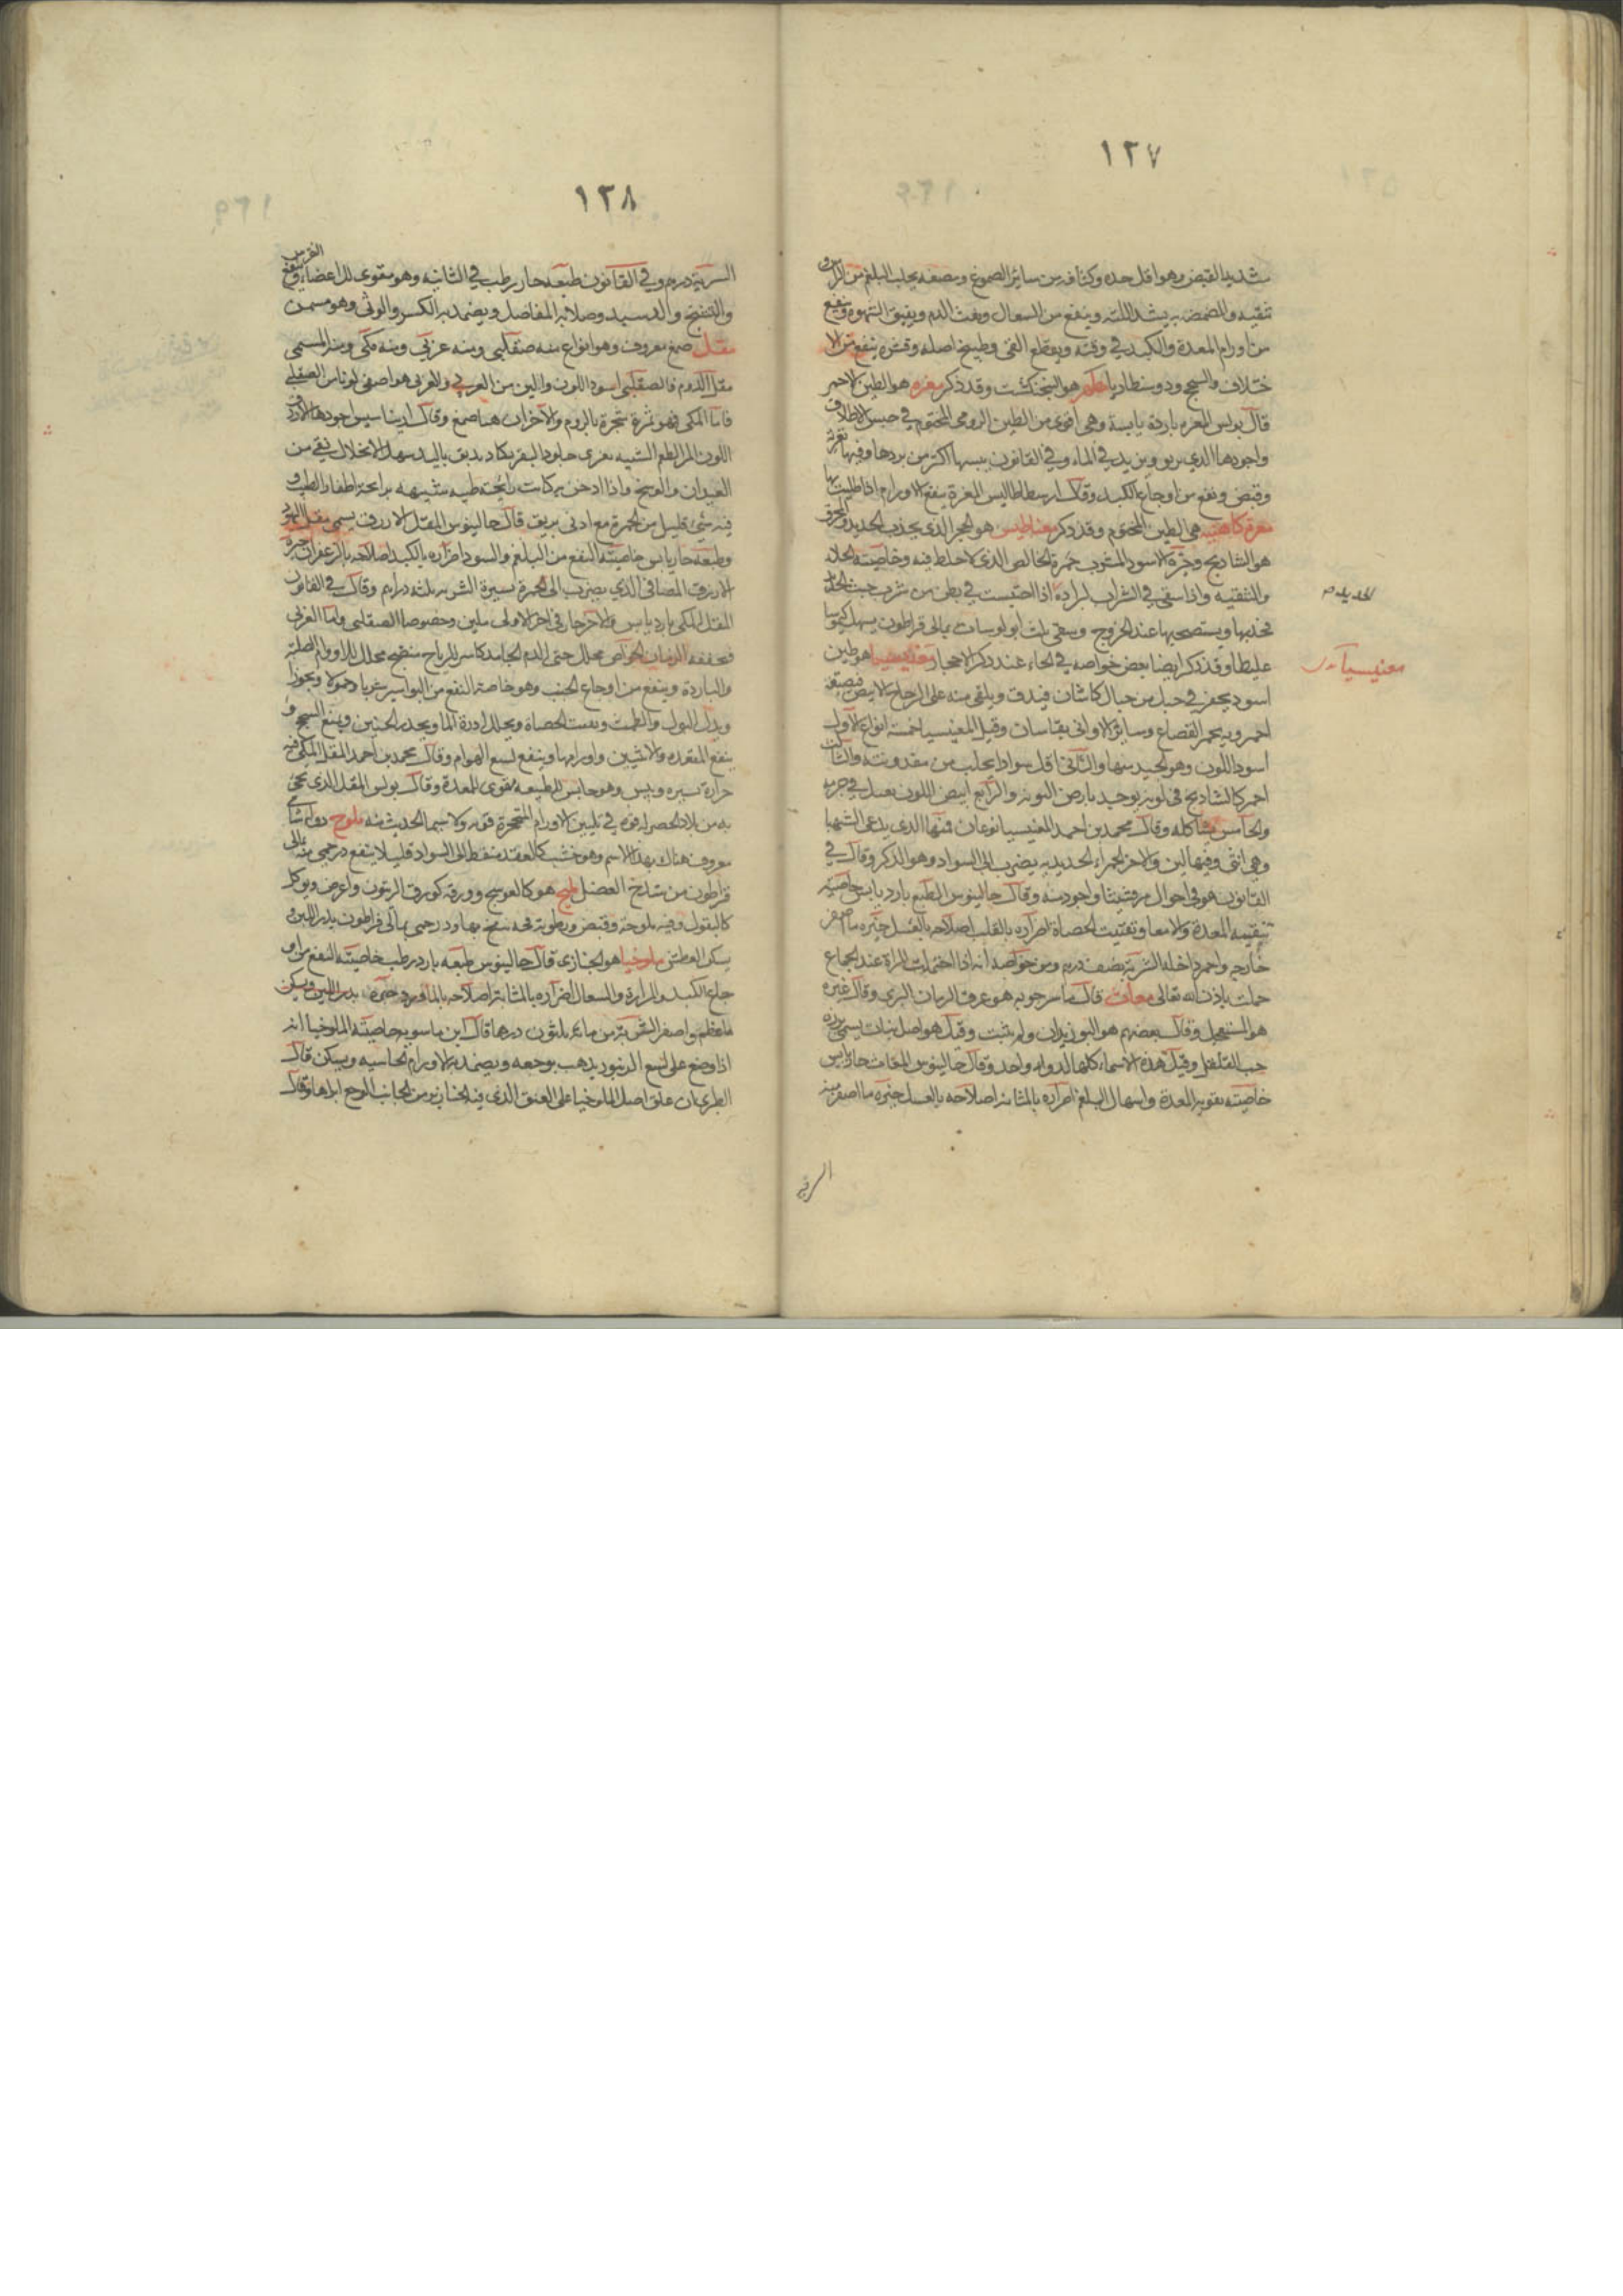 ١٣٧
شديد القبض وهو اقل حده وكثافه من سائر الصموغ ومضغه يجلب البلغم من الراس و
تنقيه والمضمضه به يشد اللثه وينفع من السعال ونفث الدم ويفيق الشهوه وينفع
من اورام المعدة والكبد في وقته ويقطع القى وطبيخ اصله وقشره ينفع من الا
ختلاف والسحج ودوسنطاريا هو البنجنكشت وقد ذكر مغره هو الطين الاحمر
قال بولس المغره باردة يابسة وهى اقوى من الطين الرومى المختوم في حبس الاطلاق
واجودها الذي يربو ويزيد في الماء وفي القانون يبسها اكثر من بردها وفيها تغرية
وقبض وينفع من اوجاع الكبد وقال ارسطاطاليس المغرة ينفع الاورام اذا طليت بها
مغرة كاهنيه هي الطين المختوم وقد ذكر مغناطيس هو الحجر الذي يجذب الحديد والمحرق
هو الشاذنج وحرة الاسود المشوب حمرة الخالص الذى لا خلط فيه وخاصيته الجلاء
والتنقيه واذا سقى في الشراب لبرادة اذا احتبست في بطن من شرب خبث الحديد
فيجذبها ويستصحبها عند الخروج وسقى ثلث ابولوسات بمالى قراطون يسهل كيموسا
غليظا وقد ذكر ايضا بعض خواصه في الحاء عند ذكر الاحجار مغنيسيا هو طين
اسود يحفر في جبل من جبال كاشان فيدق ويلقى منه على الزجاج الابيض فيصبغه
احمر وبه يحمر القصاع وسائر الاوانى بقاسان وقيل المغنيسيا خمسة انواع الاول
اسود اللون وهو الجيد منها والثانى اقل سوادا يجلب من مقدونيه والثالث
احمر كالشاذنج في لونه يوجد بارض النوبه والرابع ابيض اللون يعمل في جربه
والخامس مشاكله وقال محمد بن احمد المغنيسيا نوعان فمنها الذى يدعى الشهبا
وهي انثى وفيها لين والاخر الحمراء الحديديه يضرب الى السواد وهو الذكر وقال في
القانون هو في احوال مرقشيثا واجود منه وقال جالينوس الطبع بارد يابس خاصيته
تنقيه المعدة والامعا وتفتيت الحصاة اضراره بالقلب اصلاحه بالعسل خيره ما اصفر
خارجه واحمر داخله الشربة نصف درهم ومن خواصه انه اذا احتملت المراة عند الجماع
حملت باذن الله تعالى مغاث قال ماسرجويه هو عرق الرمان البرى وقال غيره
هو السنجيل وقال بعضهم هو البوزيدان ولم يثبت وقيل هو اصل نبات يسمى بزره
حب القلقل وقيل هذه الاسماء كلها لدواء واحد وقال جالينوس المغاث حار يابس
خاصيته تقوية المعدة واسهال البلغم اضراره بالمثانه اصلاحه بالعسل خيره ما اصفر منه
الشربة
الحديد م
مغنيسيا
١٣٨
الشربة درهم وفي القانون طبعه حار رطب في الثانيه وهو مقوى للاعضاء وينفع النقرس
والتشنج وصلابه المفاصل ويضمد به الكسر والوثى وهو مسمن
مقل صمغ معروف وهو انواع منه صقلبى ومنه عربى ومنه مكى ومنه المسمى
مقل الدوم فالصقلبى اسود اللون والين من العربي والعربى هو اصفى لونا من الصقلبى
فاما المكى فهو ثمرة شجرة بالروم والاخران هما صمغ وقال اجودها الازرق
اللون المر الطعم الشبيه بغرى جلود البقر يكاد يدبق باليد سهل الانحلال نقى من
العيدان والوسخ واذا ادخن به كانت رايحته طيبه شبيهه برايحة اظفار الطيب و
فيه شئ قليل من الحمرة مع ادنى بريق قال جالينوس المقل الازرق يسمى مقل اليهود
وطبعه حار يابس خاصيته النفع من البلغم والسودا اضراره بالكبد اصلاحه بالزعفران خيره
الازرق الصافى الذي يضرب الى الحمرة يسيرة الشربه ثلثه دراهم وقال في القانون
المقل المكى بارد يابس والاخر حار فى اخر الاولى ملين وخصوصا الصقلبى واما العربى
فيجففه الزمان الخواص محلل حتى الدم الجامد كاسر للرياح منضج محلل للاورام الصلبة
والباردة وينفع من اوجاع الجنب وهو خاصة النفع من البواسير شربا وحمولا وبخورا
ويدر البول والطمث ويفتت الحصاة ويحلل ادرة الما ويحدر الجنين وينفع السحج و
ينفع المقعده والانثيين واورامها وينفع لسع الهوام وقال محمد بن احمد المقل المكى فيه
حرارة يسيره ويبس وهو حابس للطبيعه مقوى للمعدة وقال بولس المقل الذى يجئ
به من بلاد له قوه في تليين الاورام المتحجرة قويه ولا سيما الحديث منه ملوح دواء شامى
معروف هناك بهذا الاسم وهو خشب كالعقد منقط الى السواد قليلا ينفع درخمى منه بمالى
قراطون من شدخ العضل ملح هو كالعوسج وورقه كورق الزيتون واعرض ويوكل
كالبقول وفيه ملوحه وقبض ورطوبة بمالى قراطون يدر اللبن و
يسكن العطش ملوخيا هو الخبازى قال جالينوس طبعه بارد رطب خاصيته النفع من او
جاع الكبد والمرارة والسعال اضراره بالمثانه اصلاحه بالماورد خيره
ما عظم واصفر الشربة من مائه ثلثون درهما قال ابن ماسويه خاصيته الملوخيا انه
اذا وضع على لسع الزنبور يذهب بوجعه ويضمد به الاورام الحاسيه ويسكن قال
الطبرى ان علق اصل الملوخيا على العنق الذى فيه الخنازير من الجانب الوجع ابراها وقال